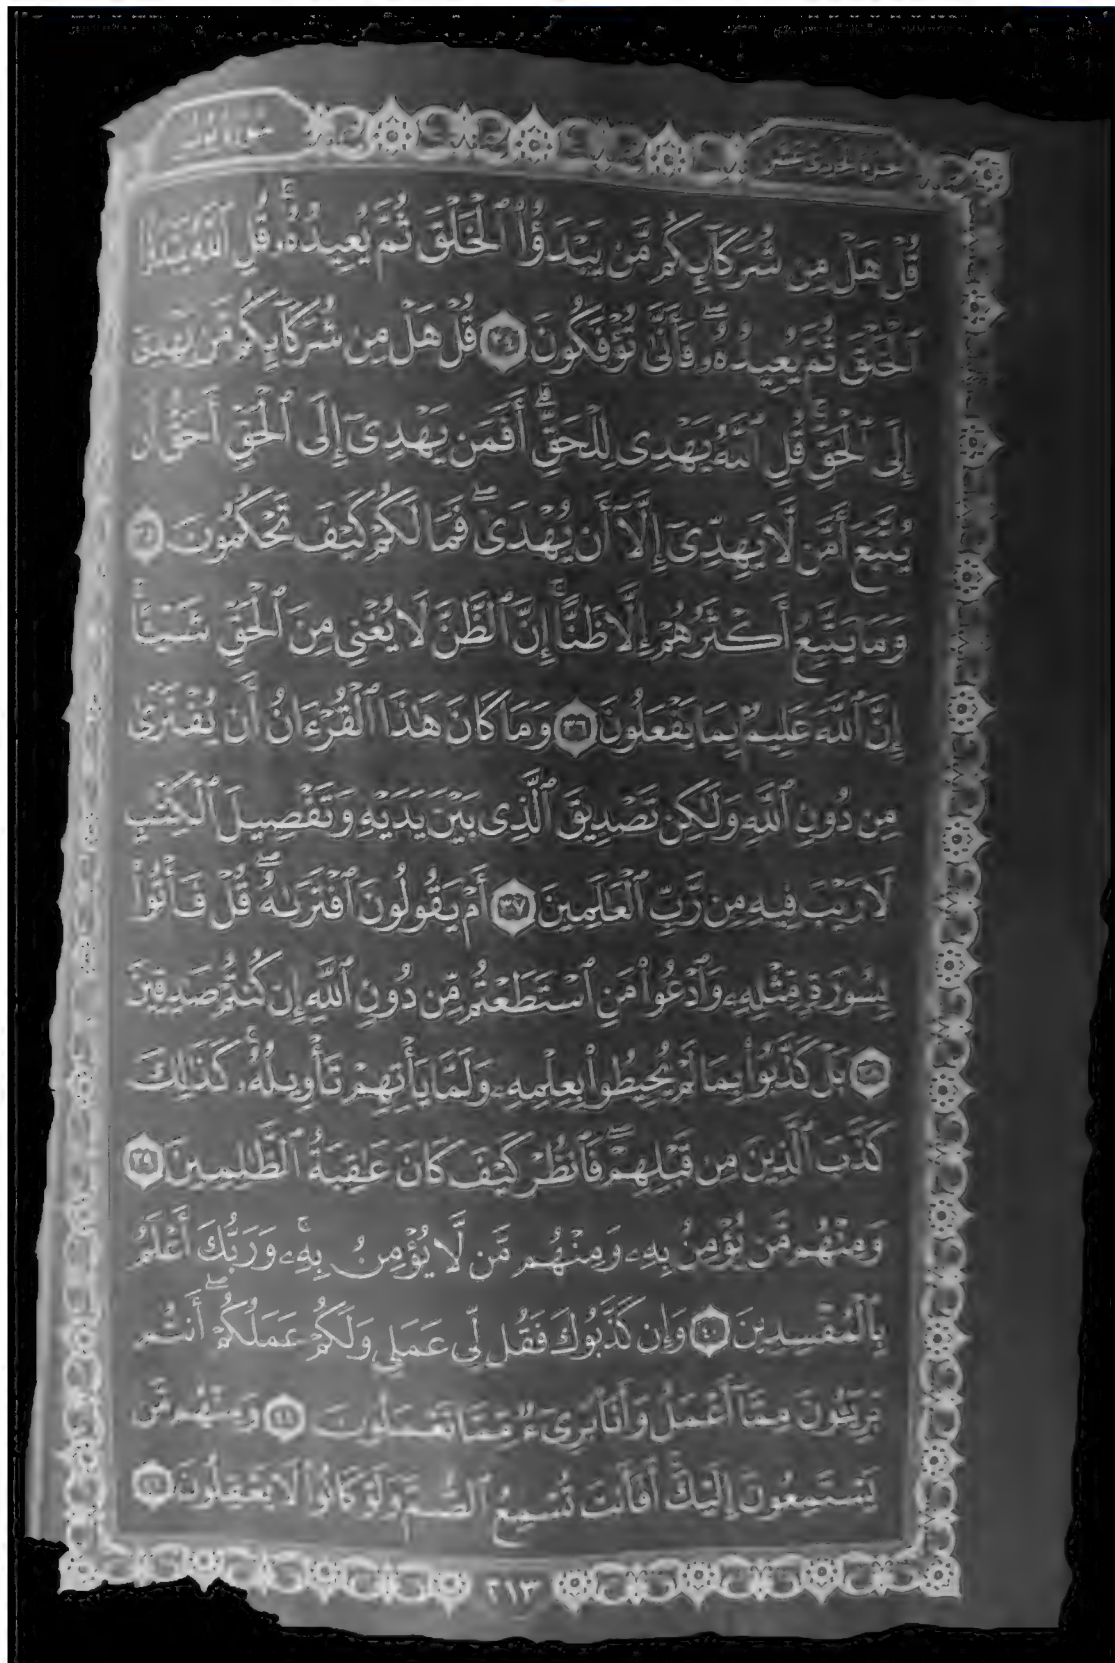 سورة يونس
الجزء الحادي عشر
قُلْ هَلْ مِن شُرَكَآئِكُم مَّن يَبْدَؤُا۟ ٱلْخَلْقَ ثُمَّ يُعِيدُهُۥ ۚ قُلِ ٱللَّهُ يَبْدَؤُا۟
ٱلْخَلْقَ ثُمَّ يُعِيدُهُۥ ۖ فَأَنَّىٰ تُؤْفَكُونَ ٣٤ قُلْ هَلْ مِن شُرَكَآئِكُم مَّن يَهْدِىٓ
إِلَى ٱلْحَقِّ ۚ قُلِ ٱللَّهُ يَهْدِى لِلْحَقِّ ۗ أَفَمَن يَهْدِىٓ إِلَى ٱلْحَقِّ أَحَقُّ أَن
يُتَّبَعَ أَمَّن لَّا يَهِدِّىٓ إِلَّآ أَن يُهْدَىٰ ۖ فَمَا لَكُمْ كَيْفَ تَحْكُمُونَ ٣٥
وَمَا يَتَّبِعُ أَكْثَرُهُمْ إِلَّا ظَنًّا ۚ إِنَّ ٱلظَّنَّ لَا يُغْنِى مِنَ ٱلْحَقِّ شَيْـًٔا ۚ
إِنَّ ٱللَّهَ عَلِيمٌۢ بِمَا يَفْعَلُونَ ٣٦ وَمَا كَانَ هَـٰذَا ٱلْقُرْءَانُ أَن يُفْتَرَىٰ
مِن دُونِ ٱللَّهِ وَلَـٰكِن تَصْدِيقَ ٱلَّذِى بَيْنَ يَدَيْهِ وَتَفْصِيلَ ٱلْكِتَـٰبِ
لَا رَيْبَ فِيهِ مِن رَّبِّ ٱلْعَـٰلَمِينَ ٣٧ أَمْ يَقُولُونَ ٱفْتَرَىٰهُ ۖ قُلْ فَأْتُوا۟
بِسُورَةٍ مِّثْلِهِۦ وَٱدْعُوا۟ مَنِ ٱسْتَطَعْتُم مِّن دُونِ ٱللَّهِ إِن كُنتُمْ صَـٰدِقِينَ
٣٨ بَلْ كَذَّبُوا۟ بِمَا لَمْ يُحِيطُوا۟ بِعِلْمِهِۦ وَلَمَّا يَأْتِهِمْ تَأْوِيلُهُۥ ۚ كَذَٰلِكَ
كَذَّبَ ٱلَّذِينَ مِن قَبْلِهِمْ ۖ فَٱنظُرْ كَيْفَ كَانَ عَـٰقِبَةُ ٱلظَّـٰلِمِينَ ٣٩
وَمِنْهُم مَّن يُؤْمِنُ بِهِۦ وَمِنْهُم مَّن لَّا يُؤْمِنُ بِهِۦ ۚ وَرَبُّكَ أَعْلَمُ
بِٱلْمُفْسِدِينَ ٤٠ وَإِن كَذَّبُوكَ فَقُل لِّى عَمَلِى وَلَكُمْ عَمَلُكُمْ ۖ أَنتُم
بَرِيٓـُٔونَ مِمَّآ أَعْمَلُ وَأَنَا۠ بَرِىٓءٌ مِّمَّا تَعْمَلُونَ ٤١ وَمِنْهُم مَّن
يَسْتَمِعُونَ إِلَيْكَ ۚ أَفَأَنتَ تُسْمِعُ ٱلصُّمَّ وَلَوْ كَانُوا۟ لَا يَعْقِلُونَ ٤٢
٢١٣